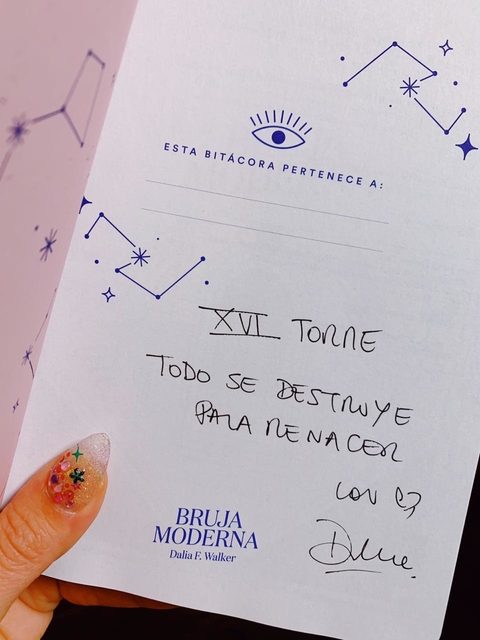 ESTA BITÁCORA PERTENECE A:
XVI TORRE
TODO SE DESTRUYE
PARA RENACER
BRUJA
MODERNA
Dalia F. Walker